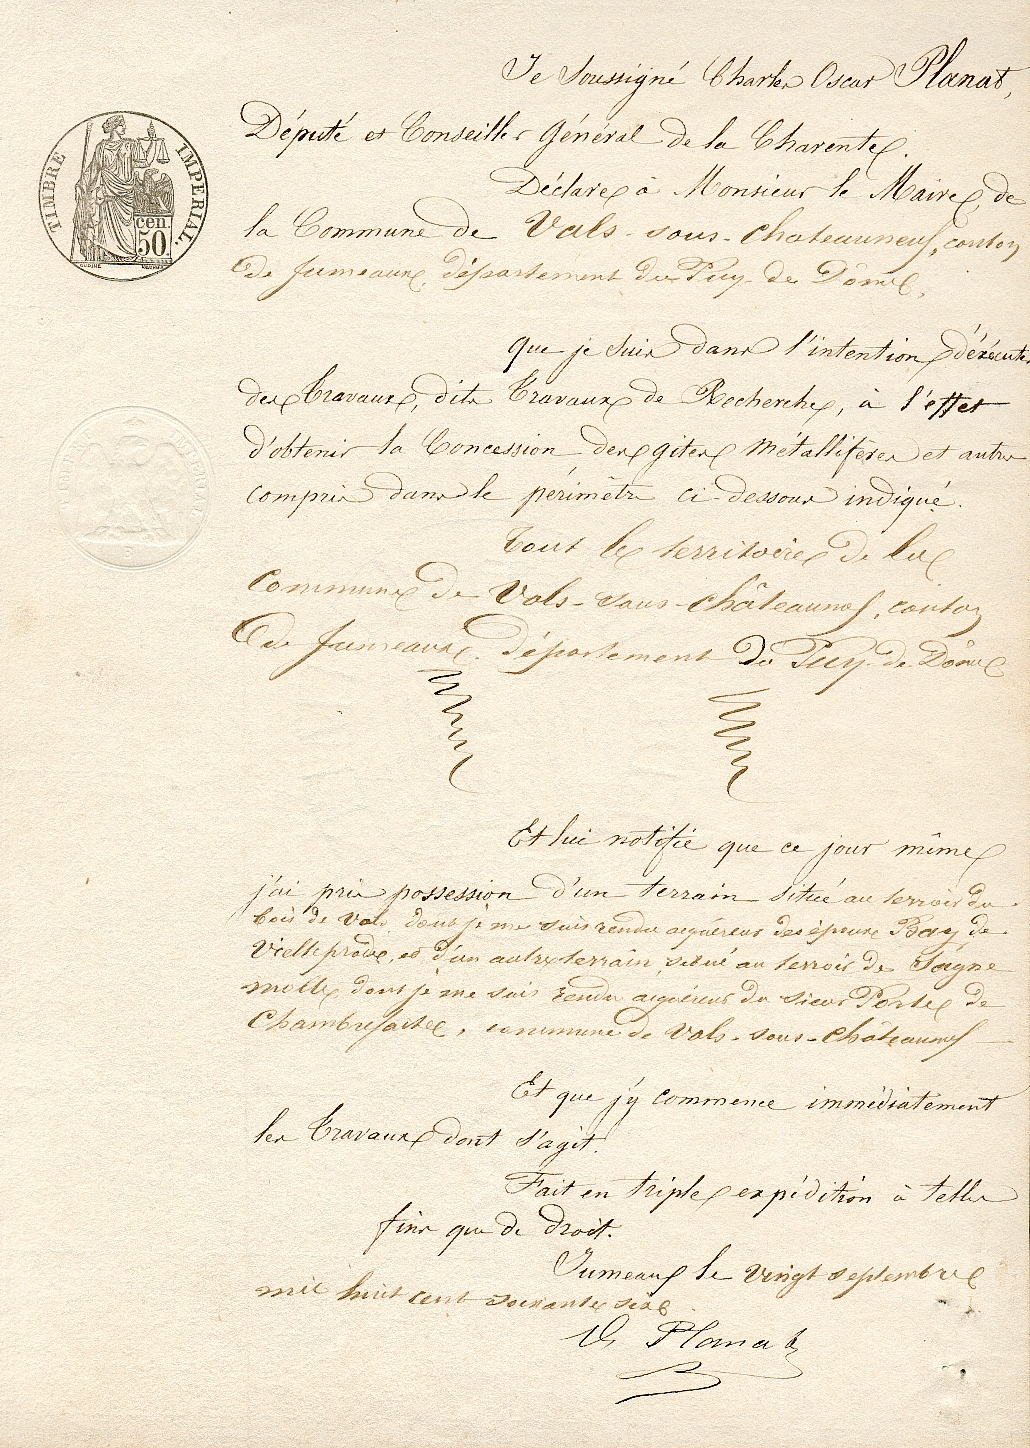 Je soussigné Charles Oscar Planat,
Député et Conseiller Général de la Charente.
TIMBRE IMPÉRIAL.
cen
50
Déclare à Monsieur le Maire, de
la Commune de Vals-sous-chateauneuf, canton
de Jumeaux, département du Puy-de Dôme,
que je suis dans l'intention d'éxécuter
des travaux, dits travaux de Recherche, à l'effet
d'obtenir la Concession des gites métallifères et autres
compris dans le périmètre ci-dessous indiqué.
Tout le territoire de la
commune de Vals-sous-châteauneuf, canton
de Jumeaux, département du Puy-de Dôme
Et lui notifie que ce jour même
j'ai pris possession d'un terrain situé au terroir du
bois de Vals, dont je me suis rendu acquéreur des époux Bay de
Vielleprade, et d'un autre terrain situé au terroir de Sagne
molle, dont je me suis rendu acquéreur du sieur Porte de
Chambreforte, commune de Vals-sous-châteauneuf
Et que j'y commence immédiatement
les travaux dont s'agit.
Fait en triple expédition à telles
fins que de droit.
Jumeaux le vingt septembre
mil huit cent soixante six
O Planat